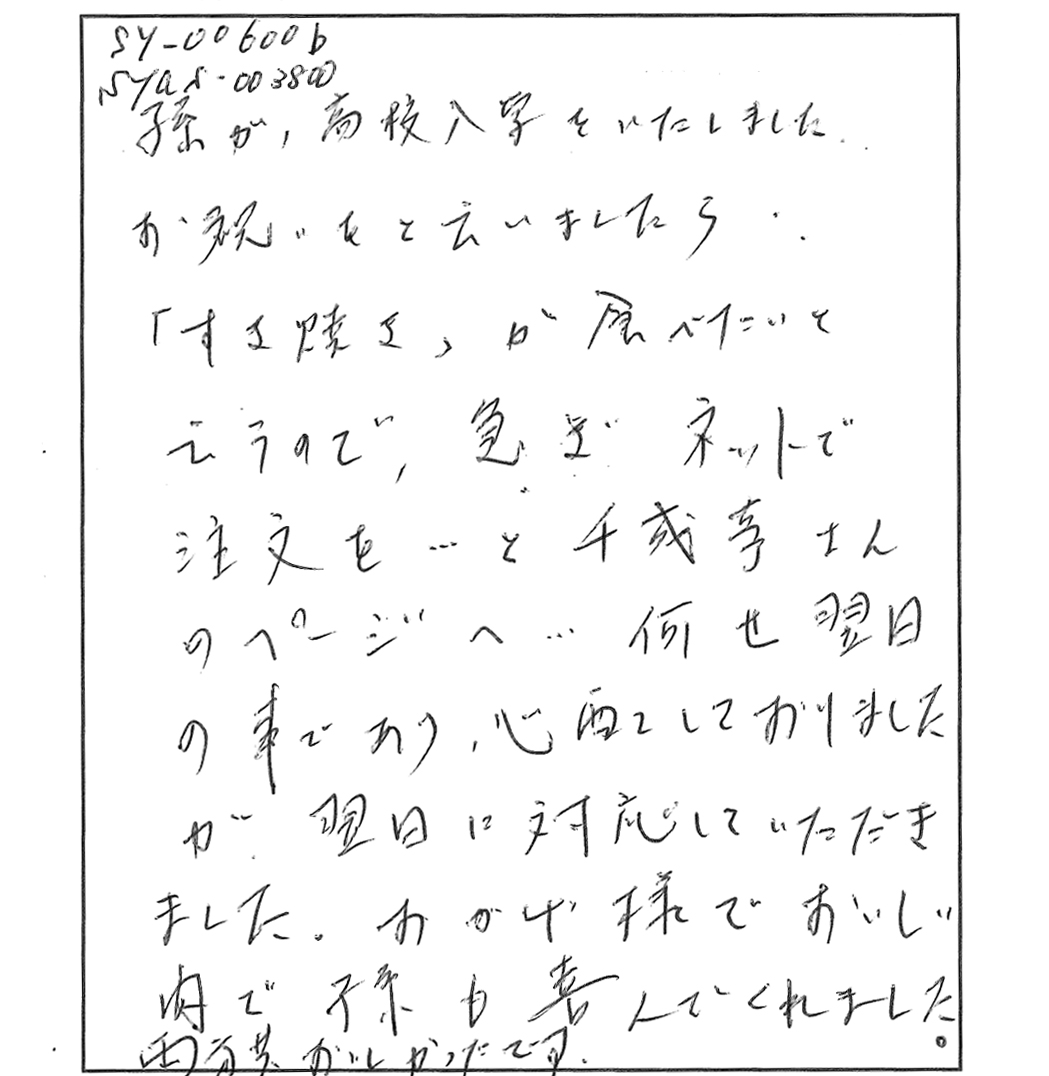 SY-00600b
SYas-003800
孫が、高校入学をいたしました.
お祝いをと云いましたら・.
「すき焼き」が食べたいと
云うので、急ぎ ネットで
注文を…と 千成亭さん
のページへ… 何せ翌日
の事であり、心配しておりました
が 翌日に対応していただき
ました。おかげ様でおいしい
肉で 孫も喜んでくれました
両方共おいしかったです.